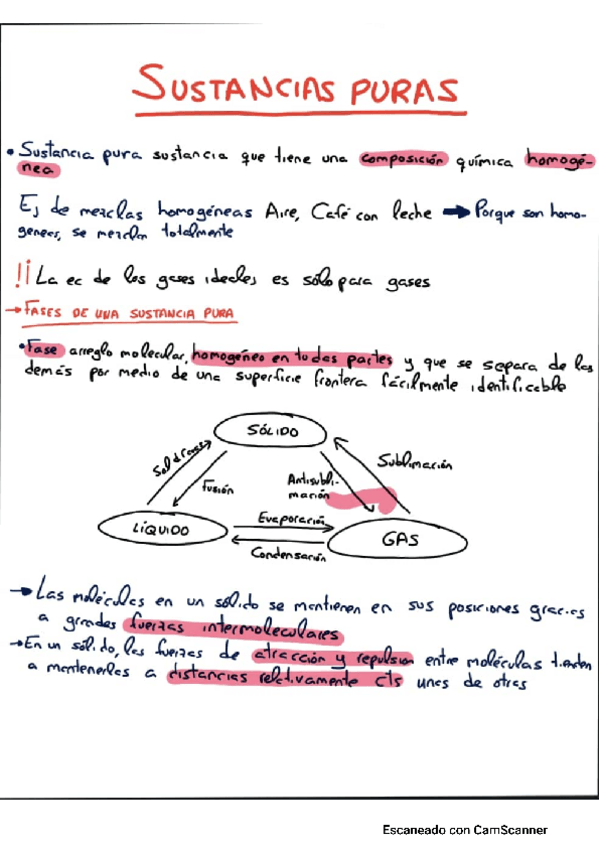 SUSTANCIAS PURAS
• Sustancia pura sustancia que tiene una composición química homogé-
nea
Ej de mezclas homogéneas Aire, Café con leche → Porque son homo-
geneas, se mezclan totalmente
!¡ La ec de los gases ideales es sólo para gases
→ FASES DE UNA SUSTANCIA PURA
• Fase arreglo molecular, homogéneo en todas partes y que se separa de las
demás por medio de una superficie frontera fácilmente identificable
SÓLIDO
Sublimación
Antisubli-
mación
Fusión
LÍQUIDO
Evaporación
Condensación
GAS
→ Las moléculas en un sólido se mantienen en sus posiciones gracias
a grandes fuerzas intermoleculares
→ En un sólido, las fuerzas de atracción y repulsion entre moléculas tienden
a mantenerlas a distancias relativamente cts unas de otras
Escaneado con CamScanner